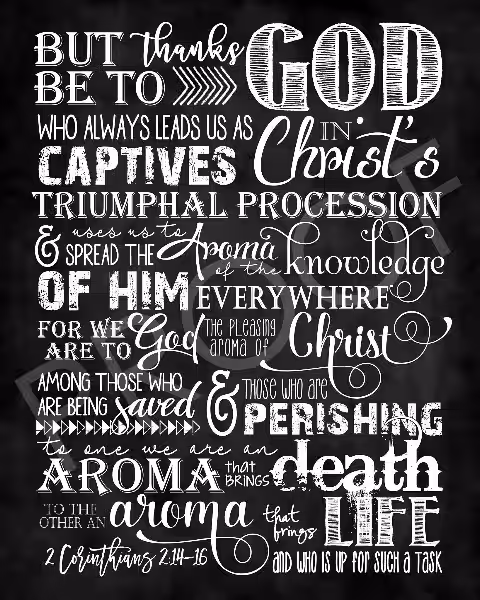 BUT thanks
BE TO GOD
WHO ALWAYS LEADS US AS
CAPTIVES IN Christ's
TRIUMPHAL PROCESSION
& uses us to
SPREAD THE Aroma of the knowledge
OF HIM EVERYWHERE
FOR WE
ARE TO God THE PLEASING
AROMA OF Christ
AMONG THOSE WHO
ARE BEING saved & THOSE WHO ARE
PERISHING
to one we are an
AROMA that BRINGS death
TO THE
OTHER AN aroma that brings LIFE
2 Corinthians 2:14-16 AND WHO IS UP FOR SUCH A TASK
PROOF